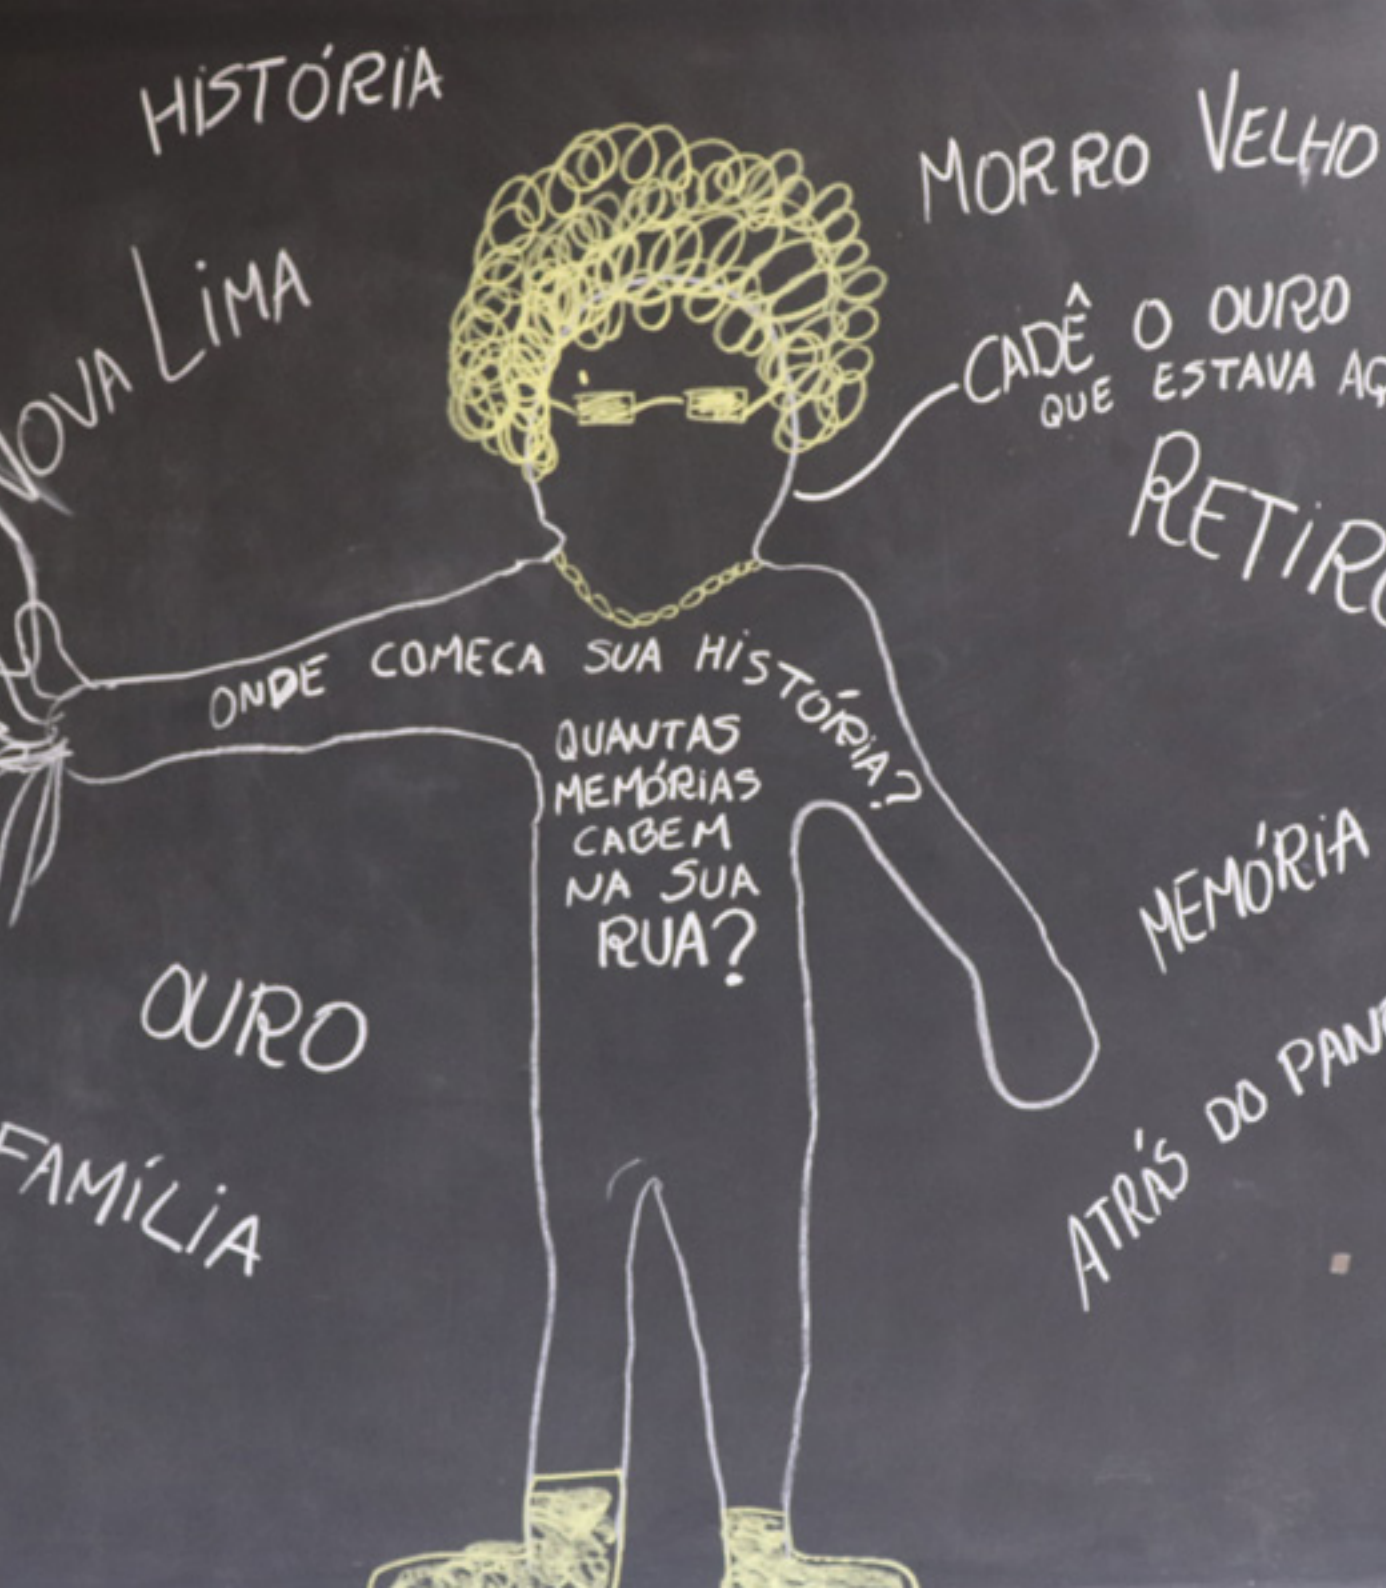 HISTÓRIA
MORRO VELHO
NOVA LIMA
CADÊ O OURO
QUE ESTAVA
ONDE COMECA SUA HISTÓRIA?
QUANTAS
MEMÓRIAS
CABEM
NA SUA
RUA?
MEMÓRIA
OURO
ATRÁS DO
FAMÍLIA